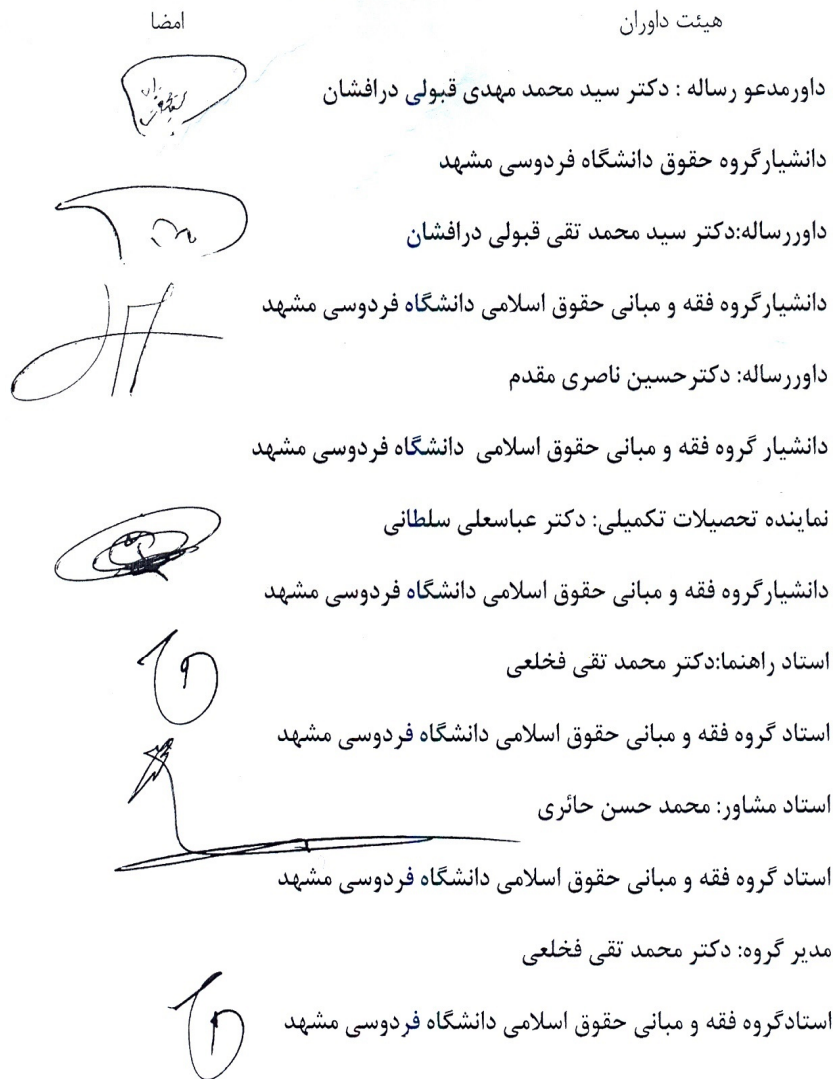 هیئت داوران امضا
داورمدعو رساله : دکتر سید محمد مهدی قبولی درافشان
دانشیارگروه حقوق دانشگاه فردوسی مشهد
داوررساله:دکتر سید محمد تقی قبولی درافشان
دانشیارگروه فقه و مبانی حقوق اسلامی دانشگاه فردوسی مشهد
داوررساله: دکترحسین ناصری مقدم
دانشیار گروه فقه و مبانی حقوق اسلامی دانشگاه فردوسی مشهد
نماینده تحصیلات تکمیلی: دکتر عباسعلی سلطانی
دانشیارگروه فقه و مبانی حقوق اسلامی دانشگاه فردوسی مشهد
استاد راهنما:دکتر محمد تقی فخلعی
استاد گروه فقه و مبانی حقوق اسلامی دانشگاه فردوسی مشهد
استاد مشاور: محمد حسن حائری
استاد گروه فقه و مبانی حقوق اسلامی دانشگاه فردوسی مشهد
مدیر گروه: دکتر محمد تقی فخلعی
استادگروه فقه و مبانی حقوق اسلامی دانشگاه فردوسی مشهد